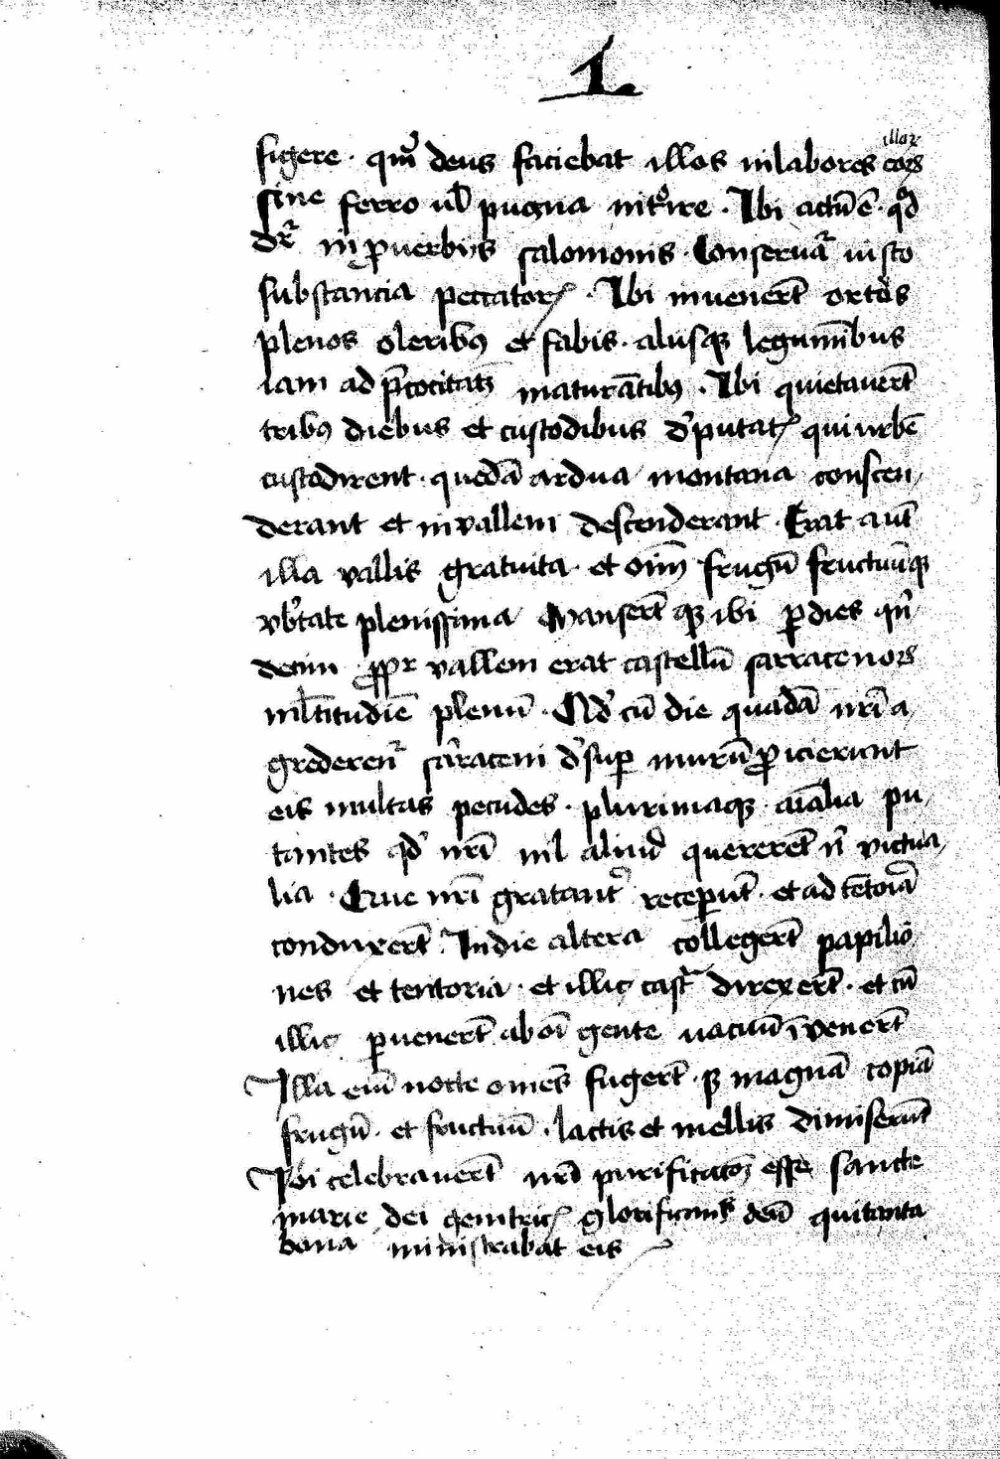 1
illoꝝ
figere · qm̄ deus faciebat illos in labores eoꝝ
sine ferro ul̄ pugna nit᷑oire · Ibi actū ē · qd̛
dr̄ in ꝓuerbijs salomonis · Conseruat᷑ iusto
substancia peccatoꝝ · Ibi inuenerūt ortos
plenos oleribꝰ et fabis · alijsqꝫ legumībus
iam ad p̄cocitatē maturātibꝰ · Ibi quietauerūt
tribꝰ diebus et custodibus d̛putatꝭ qui urbē
custodirent · quedā ardua montana conscen
derant et in vallem descenderant · Erat aūt
illa vallis gratuita · et oīm̄ frugū fructuūqꝫ
vb̛tate plenissima Manserūt qꝫ ibi ꝑ dies qn̄
decim ꝓpt᷑ vallem erat castellū sarracenoꝝ
ml̄titudīe plenū · Qd̛ cū die quadā nr̄i a
grederent᷑ sarraceni d̛sup̱ murū ꝓiecierunt
eis multas pecudes · plurimaqꝫ aīalia pu
tantes qd̛ nr̄i nil aliud quererēt n̄ victua
lia · Que nr̄i gratant᷑ receperūt · et ad tētoria
conduxerūt · In die altera collegerūt papilio
nes et tentoria · et illic castra direxerūt · et cū
illic ꝑuenerūt ab oī gente uacuū īvenerūt
Illa eīm nocte omēs fugerūt · sꝫ magnā copiā
frugū · et fructuū · lactis et mellis dimiserūt
Ibi celebrauerūt nr̄i purificatōꝫ sancte
marie dei genitricꝭ glorificantes deū qui tanta
bona ministrabat eis